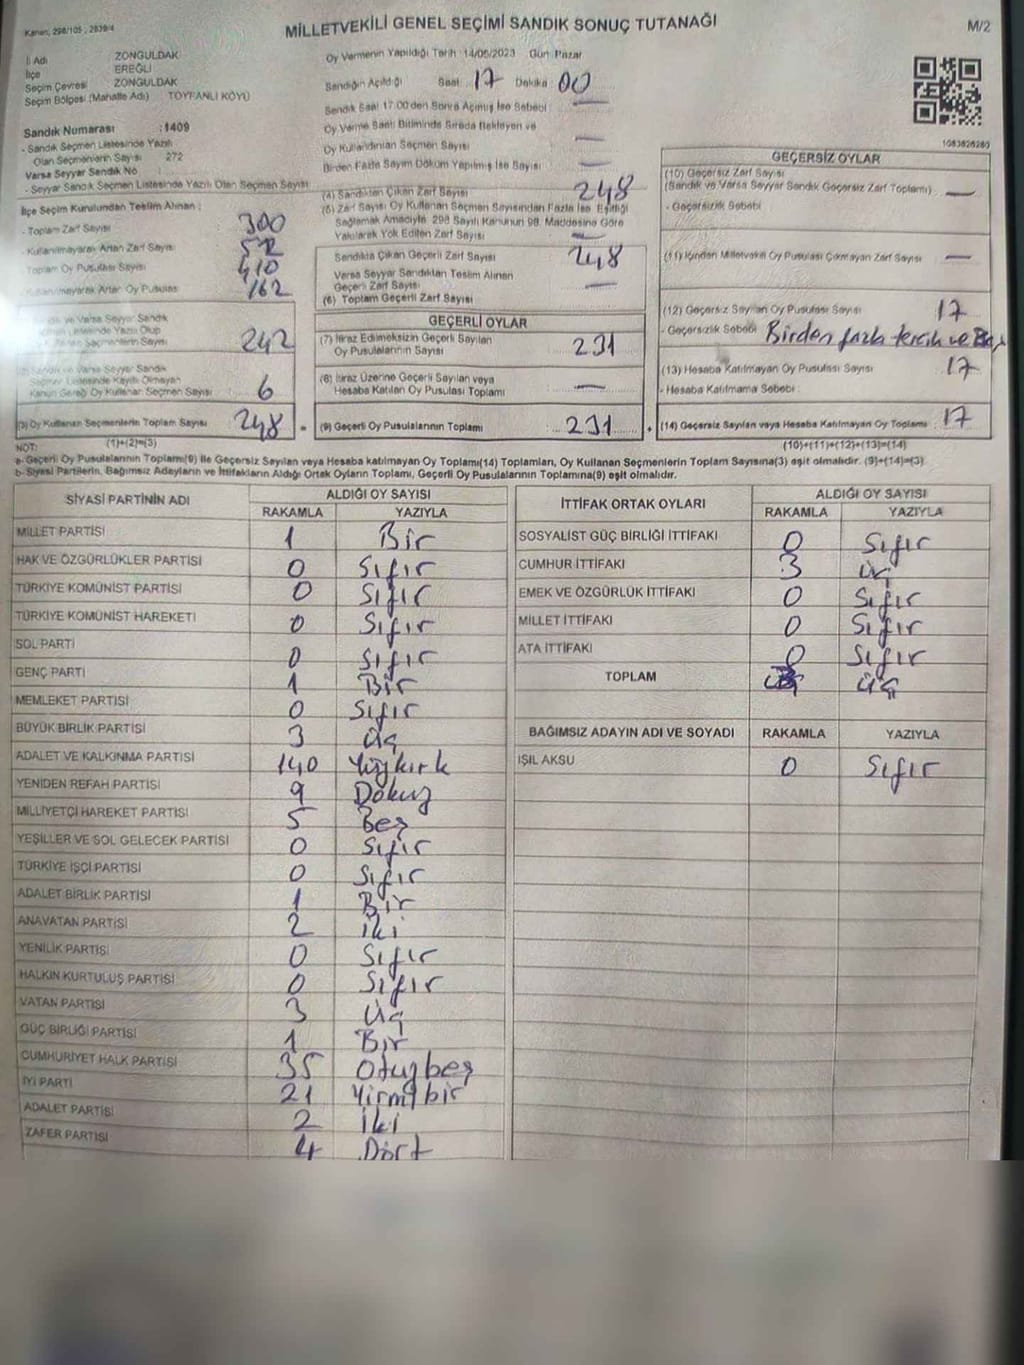 Kanun, 298/105 ; 2839/4
MİLLETVEKİLİ GENEL SEÇİMİ SANDIK SONUÇ TUTANAĞI
M/2
İl Adı ZONGULDAK
İlçe EREĞLİ
Seçim Çevresi ZONGULDAK
Seçim Bölgesi (Mahalle Adı) TOYFANLI KÖYÜ
Sandık Numarası : 1409
- Sandık Seçmen Listesinde Yazılı
Olan Seçmenlerin Sayısı 272
Varsa Seyyar Sandık No
- Seyyar Sandık Seçmen Listesinde Yazılı Olan Seçmen Sayısı
İlçe Seçim Kurulundan Teslim Alınan :
- Toplam Zarf Sayısı 300
- Kullanılmayarak Artan Zarf Sayısı 52
Toplam Oy Pusulası Sayısı 410
- Kullanılmayarak Artan Oy Pusulası 162
ve Varsa Seyyar Sandık
Listesinde Yazılı Olup
Seçmenlerin Sayısı 242
Sandık ve Varsa Seyyar Sandık
Seçmen Listesinde Kayıtlı Olmayan
Kanun Gereği Oy Kullanan Seçmen Sayısı 6
(3) Oy Kullanan Seçmenlerin Toplam Sayısı 248
(1)+(2)=(3)
Oy Vermenin Yapıldığı Tarih :14/05/2023 Gün Pazar
Sandığın Açıldığı Saat 17 Dakika 00
Sandık Saat 17:00'den Sonra Açılmış İse Sebebi —
Oy Verme Saati Bitiminde Sırada Bekleyen ve
Oy Kullandırılan Seçmen Sayısı —
Birden Fazla Sayım Döküm Yapılmış İse Sayısı —
(4) Sandıktan Çıkan Zarf Sayısı 248
(5) Zarf Sayısı Oy Kullanan Seçmen Sayısından Fazla İse Eşitliği
Sağlamak Amacıyla 298 Sayılı Kanunun 98. Maddesine Göre
Yakılarak Yok Edilen Zarf Sayısı —
Sandıkta Çıkan Geçerli Zarf Sayısı 248
Varsa Seyyar Sandıktan Teslim Alınan
Geçerli Zarf Sayısı —
(6) Toplam Geçerli Zarf Sayısı
GEÇERLİ OYLAR
(7) İtiraz Edilmeksizin Geçerli Sayılan
Oy Pusulalarının Sayısı 231
(8) İtiraz Üzerine Geçerli Sayılan veya
Hesaba Katılan Oy Pusulası Toplamı —
= (9) Geçerli Oy Pusulalarının Toplamı 231
1083828280
GEÇERSİZ OYLAR
(10) Geçersiz Zarf Sayısı
(Sandık ve Varsa Seyyar Sandık Geçersiz Zarf Toplamı) —
- Geçersizlik Sebebi
(11) İçinden Milletvekili Oy Pusulası Çıkmayan Zarf Sayısı —
(12) Geçersiz Sayılan Oy Pusulası Sayısı 17
- Geçersizlik Sebebi Birden fazla tercih ve
(13) Hesaba Katılmayan Oy Pusulası Sayısı 17
- Hesaba Katılmama Sebebi :
+ (14) Geçersiz Sayılan veya Hesaba Katılmayan Oy Toplamı : 17
(10)+(11)+(12)+(13)=(14)
NOT:
a- Geçerli Oy Pusulalarının Toplamı(9) ile Geçersiz Sayılan veya Hesaba katılmayan Oy Toplamı(14) Toplamları, Oy Kullanan Seçmenlerin Toplam Sayısına(3) eşit olmalıdır. (9)+(14)=(3)
b- Siyasi Partilerin, Bağımsız Adayların ve İttifakların Aldığı Ortak Oyların Toplamı, Geçerli Oy Pusulalarının Toplamına(9) eşit olmalıdır.
SİYASİ PARTİNİN ADI
ALDIĞI OY SAYISI
RAKAMLA YAZIYLA
MİLLET PARTİSİ 1 Bir
HAK VE ÖZGÜRLÜKLER PARTİSİ 0 Sıfır
TÜRKİYE KOMÜNİST PARTİSİ 0 Sıfır
TÜRKİYE KOMÜNİST HAREKETİ 0 Sıfır
SOL PARTİ 0 Sıfır
GENÇ PARTİ 1 Bir
MEMLEKET PARTİSİ 0 Sıfır
BÜYÜK BİRLİK PARTİSİ 3 Üç
ADALET VE KALKINMA PARTİSİ 140 Yüzkırk
YENİDEN REFAH PARTİSİ 9 Dokuz
MİLLİYETÇİ HAREKET PARTİSİ 5 Beş
YEŞİLLER VE SOL GELECEK PARTİSİ 0 Sıfır
TÜRKİYE İŞÇİ PARTİSİ 0 Sıfır
ADALET BİRLİK PARTİSİ 1 Bir
ANAVATAN PARTİSİ 2 İki
YENİLİK PARTİSİ 0 Sıfır
HALKIN KURTULUŞ PARTİSİ 0 Sıfır
VATAN PARTİSİ 3 Üç
GÜÇ BİRLİĞİ PARTİSİ 1 Bir
CUMHURİYET HALK PARTİSİ 35 Otuzbeş
İYİ PARTİ 21 Yirmibir
ADALET PARTİSİ 2 İki
ZAFER PARTİSİ 4 Dört
İTTİFAK ORTAK OYLARI
ALDIĞI OY SAYISI
RAKAMLA YAZIYLA
SOSYALİST GÜÇ BİRLİĞİ İTTİFAKI 0 Sıfır
CUMHUR İTTİFAKI 3 üç
EMEK VE ÖZGÜRLÜK İTTİFAKI 0 Sıfır
MİLLET İTTİFAKI 0 Sıfır
ATA İTTİFAKI 0 Sıfır
TOPLAM üç
BAĞIMSIZ ADAYIN ADI VE SOYADI RAKAMLA YAZIYLA
IŞIL AKSU 0 Sıfır